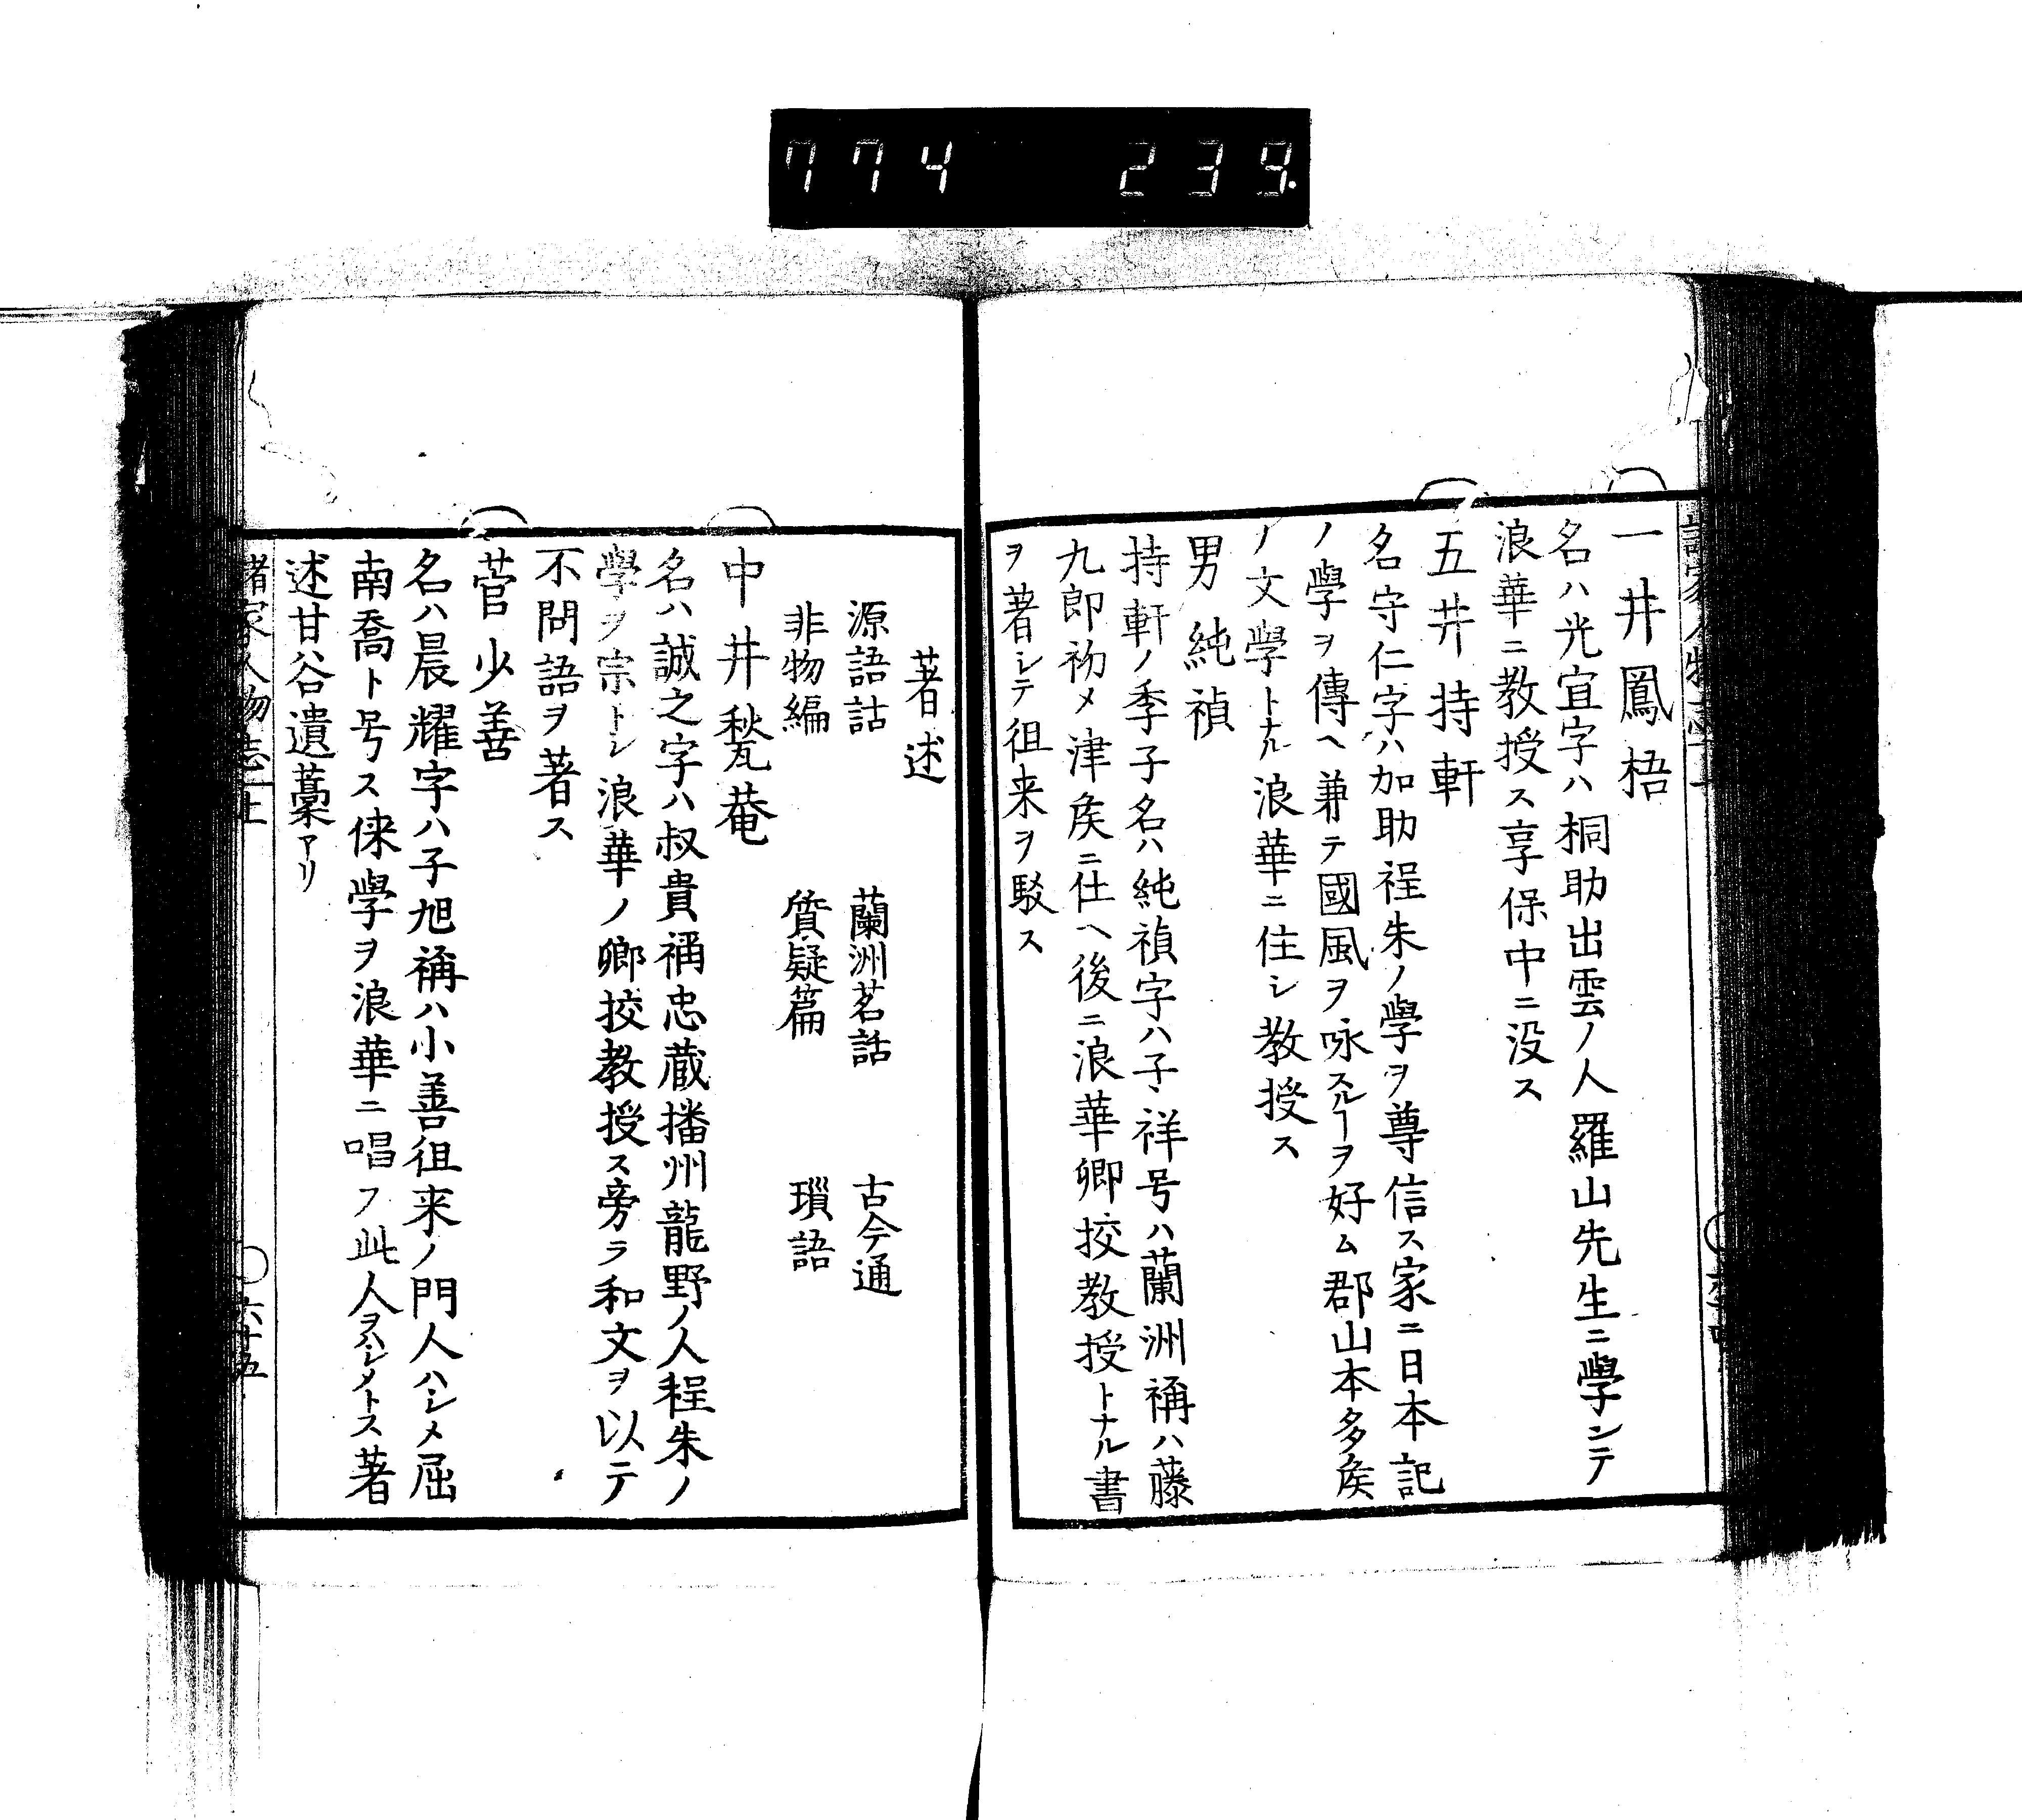 774 239.
一井鳳梧
名ハ光宜字ハ桐助出雲ノ人羅山先生ニ學ンテ
浪華ニ教授ス享保中ニ没ス
五井持軒
名守仁字ハ加助程朱ノ學ヲ尊信ス家ニ日本記
ノ學ヲ傳ヘ兼テ國風ヲ咏スルヿヲ好ム郡山本多矦
ノ文學トナル浪華ニ住シ教授ス
男純禎
持軒ノ季子名ハ純禎字ハ子祥号ハ蘭洲稱ハ藤
九郎初メ津矦ニ仕ヘ後ニ浪華郷挍教授トナル書
ヲ著シテ徂来ヲ駁ス
著述
源語詁 蘭洲茗話 古今通
非物編 質疑篇 瑣語
中井甃菴
名ハ誠之字ハ叔貴稱忠蔵播州龍野ノ人程朱ノ
學ヲ宗トシ浪華ノ郷挍教授ス旁ラ和文ヲ以テ
不問語ヲ著ス
菅少善
名ハ晨耀字ハ子旭稱ハ小善徂来ノ門人ハシメ屈
南喬ト号ス徠學ヲ浪華ニ唱フ此人ヲハシメトス著
述甘谷遺藁アリ
諸家人物志上 六十五